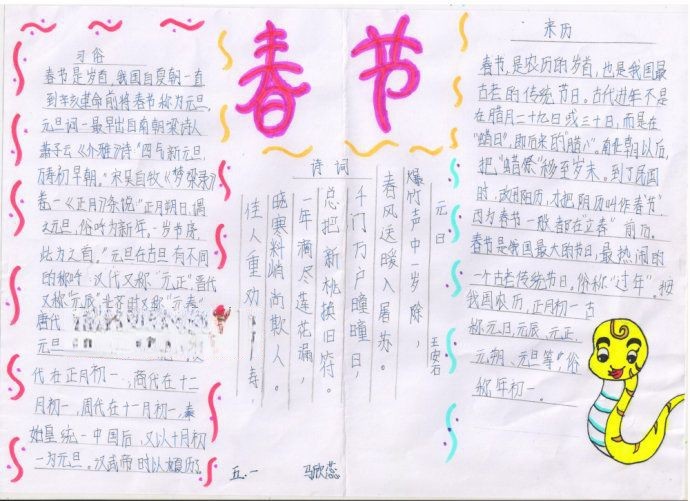 春节
习俗
春节是岁首，我国自夏朝一直
到辛亥革命前将春节称为元旦，
元旦词一最早出自南朝梁诗人
萧子云《介雅》诗"四气新元旦，
万寿初早朝。"宋吴自牧《梦粱录》
卷一《正月》条说"正月朔日，谓
之元旦，俗呼为新年。一岁节序，
此为之首。"元旦在古旦有不同
的称呼，汉代又称"元正"，晋代
又称"元辰"，北齐时又称"元春"
唐代
元旦
代在正月初一，商代在十二
月初一，周代在十一月初一，秦
始皇统一中国后，又以十月初一
为元旦。汉武帝时以
诗词
元日
王安石
爆竹声中一岁除，
春风送暖入屠苏。
千门万户曈曈日，
总把新桃换旧符。
一年滴尽莲花漏，
晓寒料峭尚欺人。
佳人重劝
来历
春节，是农历的岁首，也是我国最
古老的传统节日。古代过年不是
在腊月二十九日或三十日，而是在
"蜡日"，即后来的"腊八"。南北朝以后，
把"蜡祭"移至岁末。到了民国
时，改用阳历，才把阴历叫作春节"，
因为春节一般都在"立春"前后。
春节是我国最大的节日，最热闹的
一个古老传统节日。俗称"过年"。按
我国农历，正月初一古
称元日、元辰、元正、
元朔、元旦等，俗
称年初一。
五.一 马欣蕊